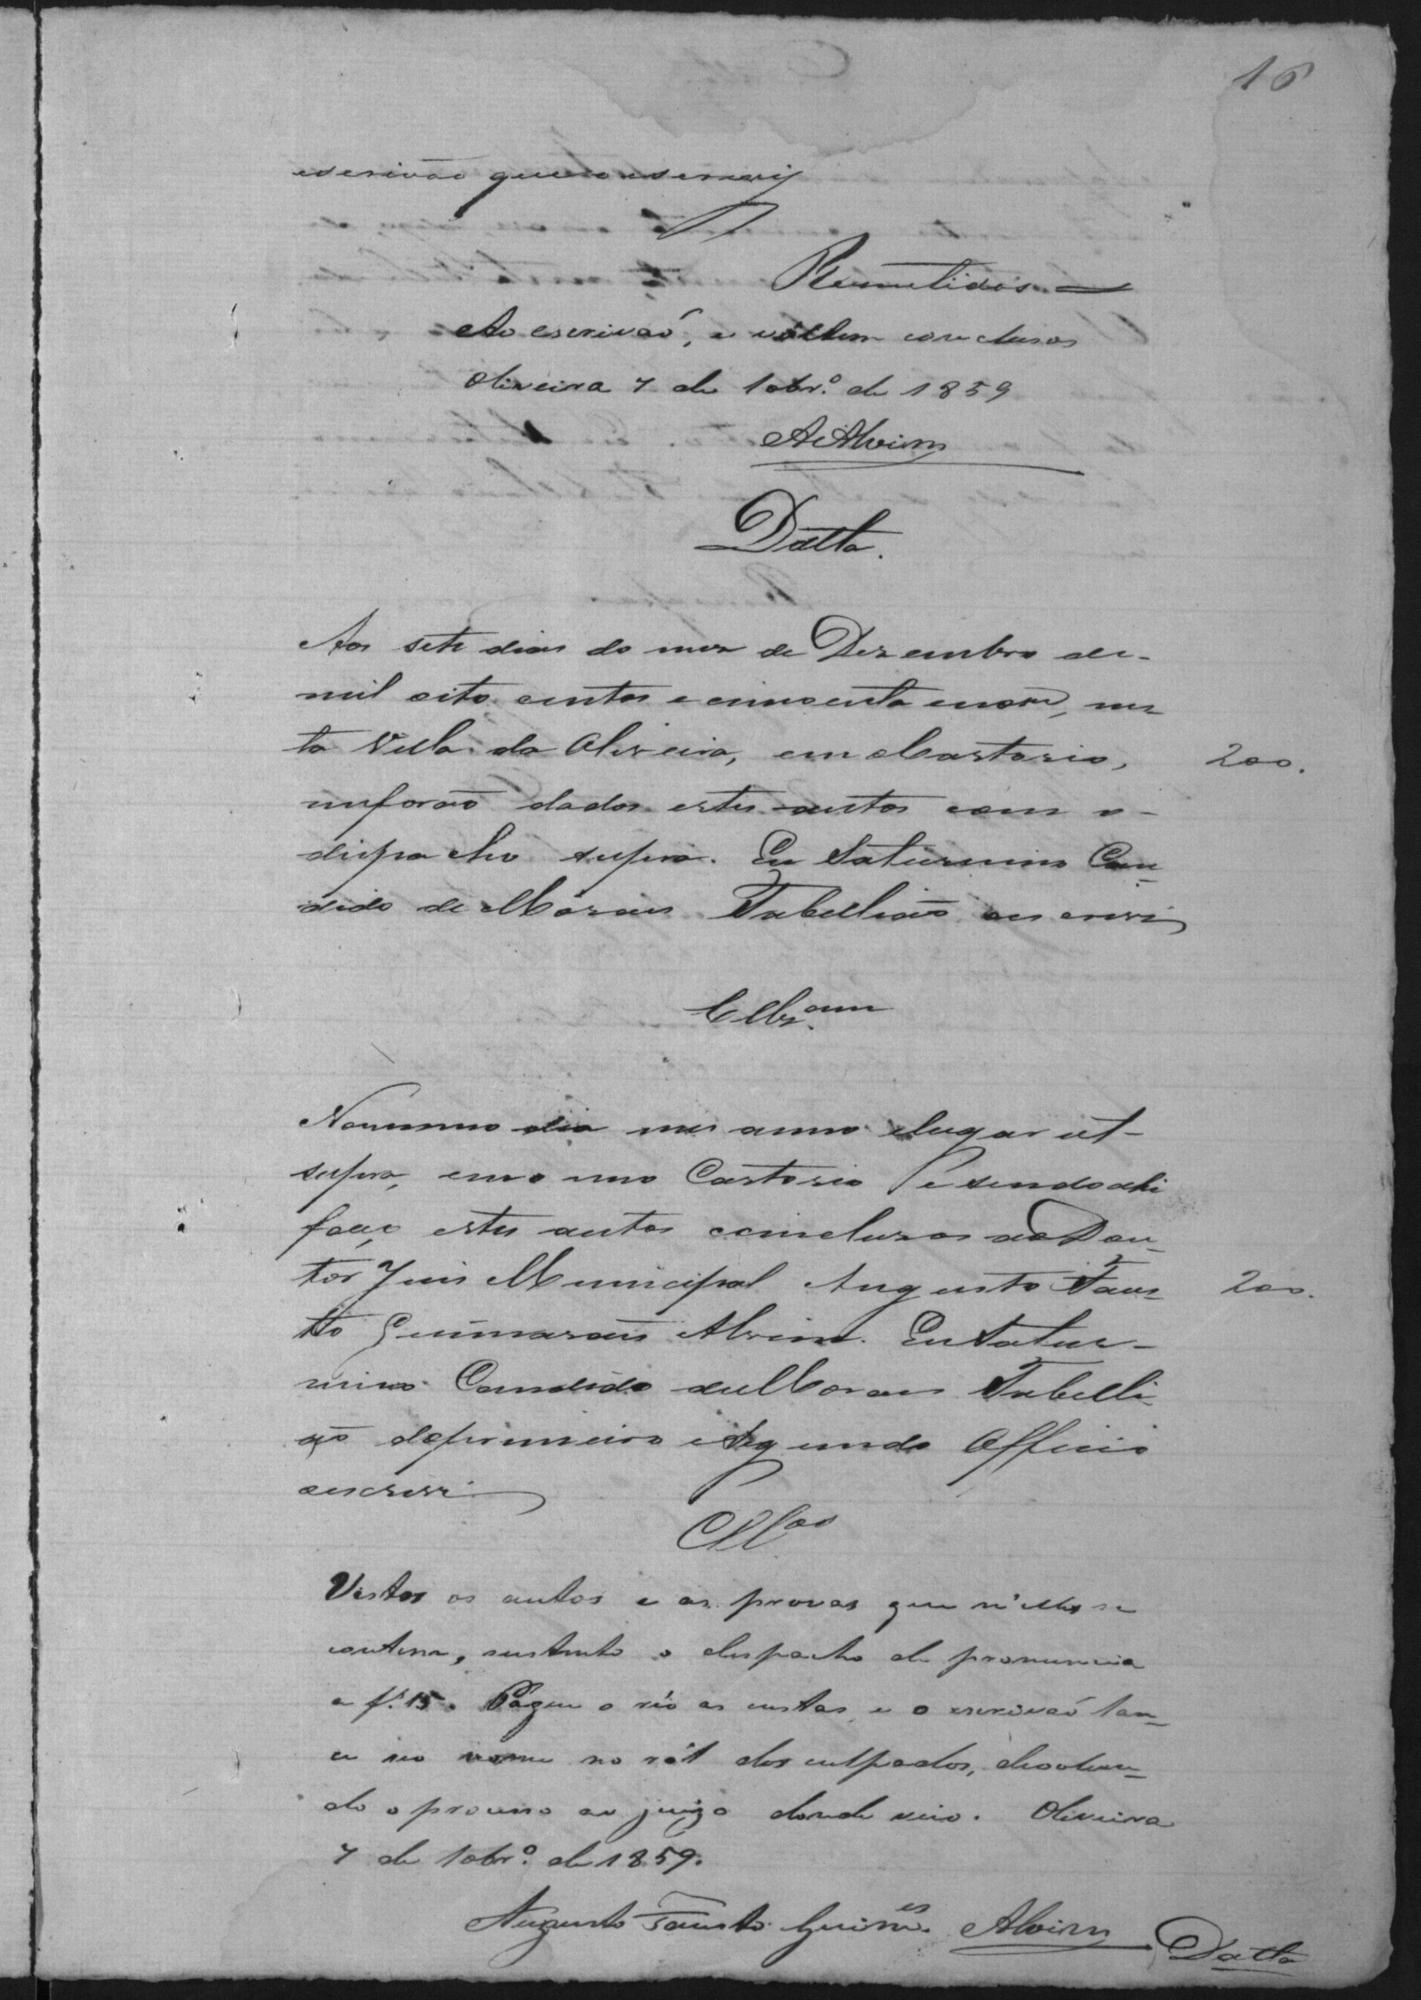 16
escrivão que o escrevi
Remetidos
Ao escrivaõ, e voltem conclusos
Oliveira 7 de 10br.º de 1859
AAlvim
Datta.
Aos sete dias do mez de Dezembro de
mil oito centos e cincoenta e nove, nes
ta Villa da Oliveira, em o Cartorio, 200.
me forão dados estes autos com o
dispacho supra. Eu Saturnino Can
dido de Morais Tabellião o escrevi
Clz.am
No mesmo dia mes anno e lugar ut
supra, em o meo Cartorio e sendo ahi
faço estes autos concluzos ao Dou
tor Juis Municipal Augusto Faus 200.
to Guimaraens Alvim. Eu Satur
nino Candido de Morais Tabelli
ão do primeiro e segundo Officio
o escrevi
Cllos
Vistos os autos e as provas que n'elles se
contem, sustento o despacho de pronuncia
a f. 15. Pague o réo as custas, e o escrivaõ lan
ce seo nome no ról dos culpados, devolven
do o processo ao juizo donde veio. Oliveira
7 de 10br.º de 1859.
Augusto Fausto Guim.es Alvim
Datta